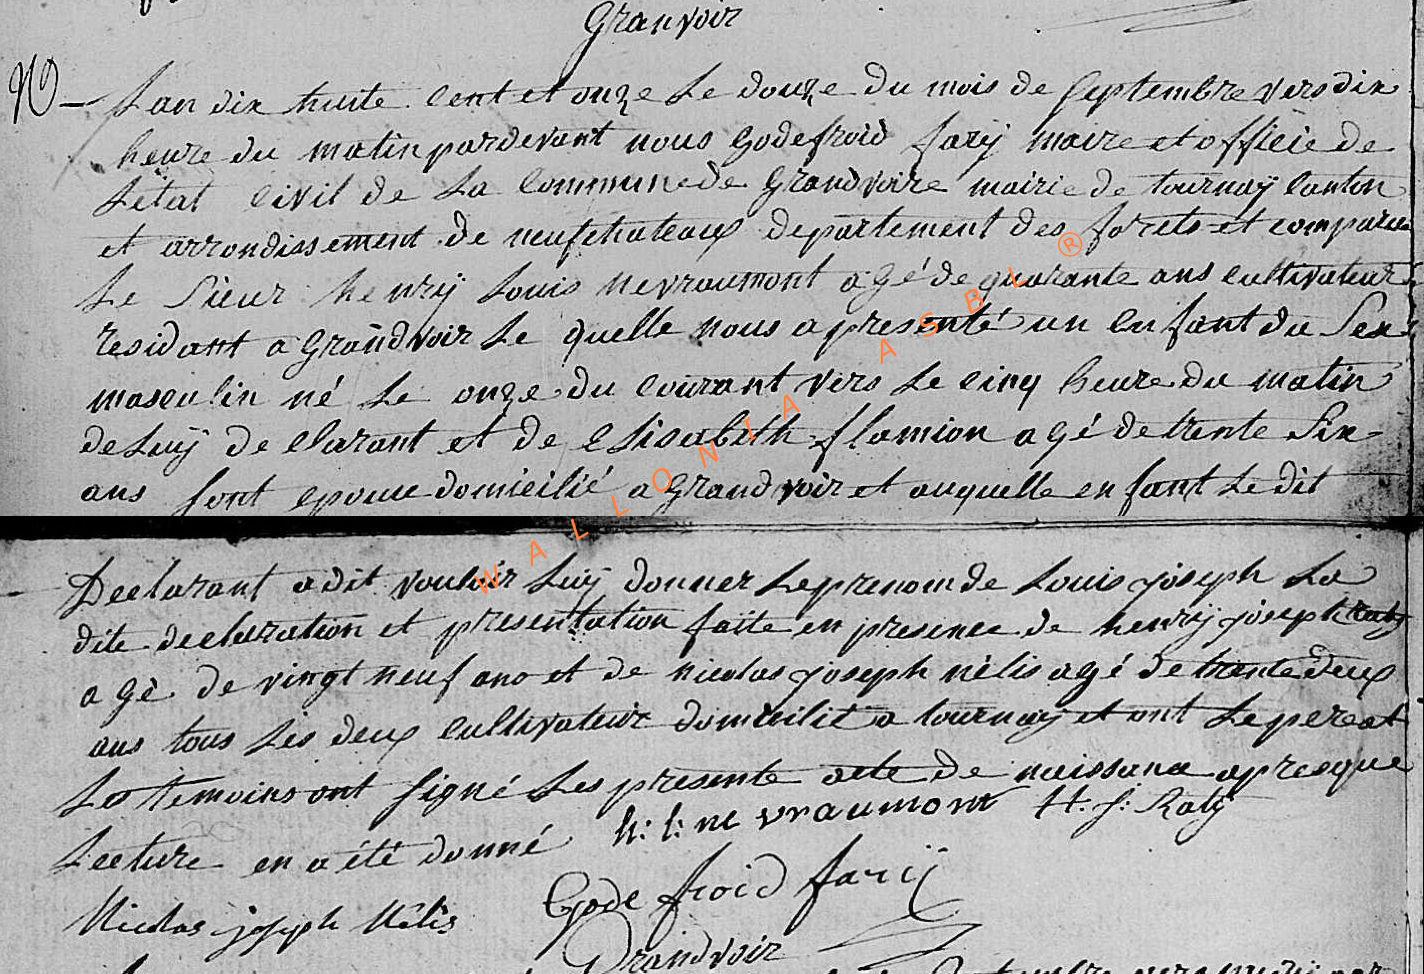 Granvoir
N° – Lan dix huite cent et onze Le douze du mois de Septembre vers dix
heure du matin pardevant nous Godefroid farÿ maire et officié de
Letat civil de La Commune de Grandvoire mairie de tournaÿ Canton
et arrondissement de neufchateaux departement des forets et comparu
Le Sieur henrÿ Louis nevraumont agé de quarante ans cultivateur
residant a Grandvoir Le quelle nous a presenté un enfant du Sex
masculin né Le onze du courant vers Le cinq heure du matin
de Luÿ de clarant et de elisabeth flamion agé de trente Six
ans sont epouse domicilié a Grandvoir et auquelle enfant Le dit
Declarant a dit vouloir Luÿ donner Le prenom de Louis joseph La
dite declaration et presentation faite en presence de henrÿ joseph Raty
agé de vingt neuf ans et de nicolas joseph nélis agé de trente deux
ans tous Les deux cultivateur domicilié a tournaÿ et ont Le pere et
Les temoins ont signé Les presente acte de naissance apres que
Lecture en a été donné h: l: ne vraumont H. J: Raty
Nicolas joseph Nélis Gode froid farÿ
Grandvoir
WALLONIA ASBL ®